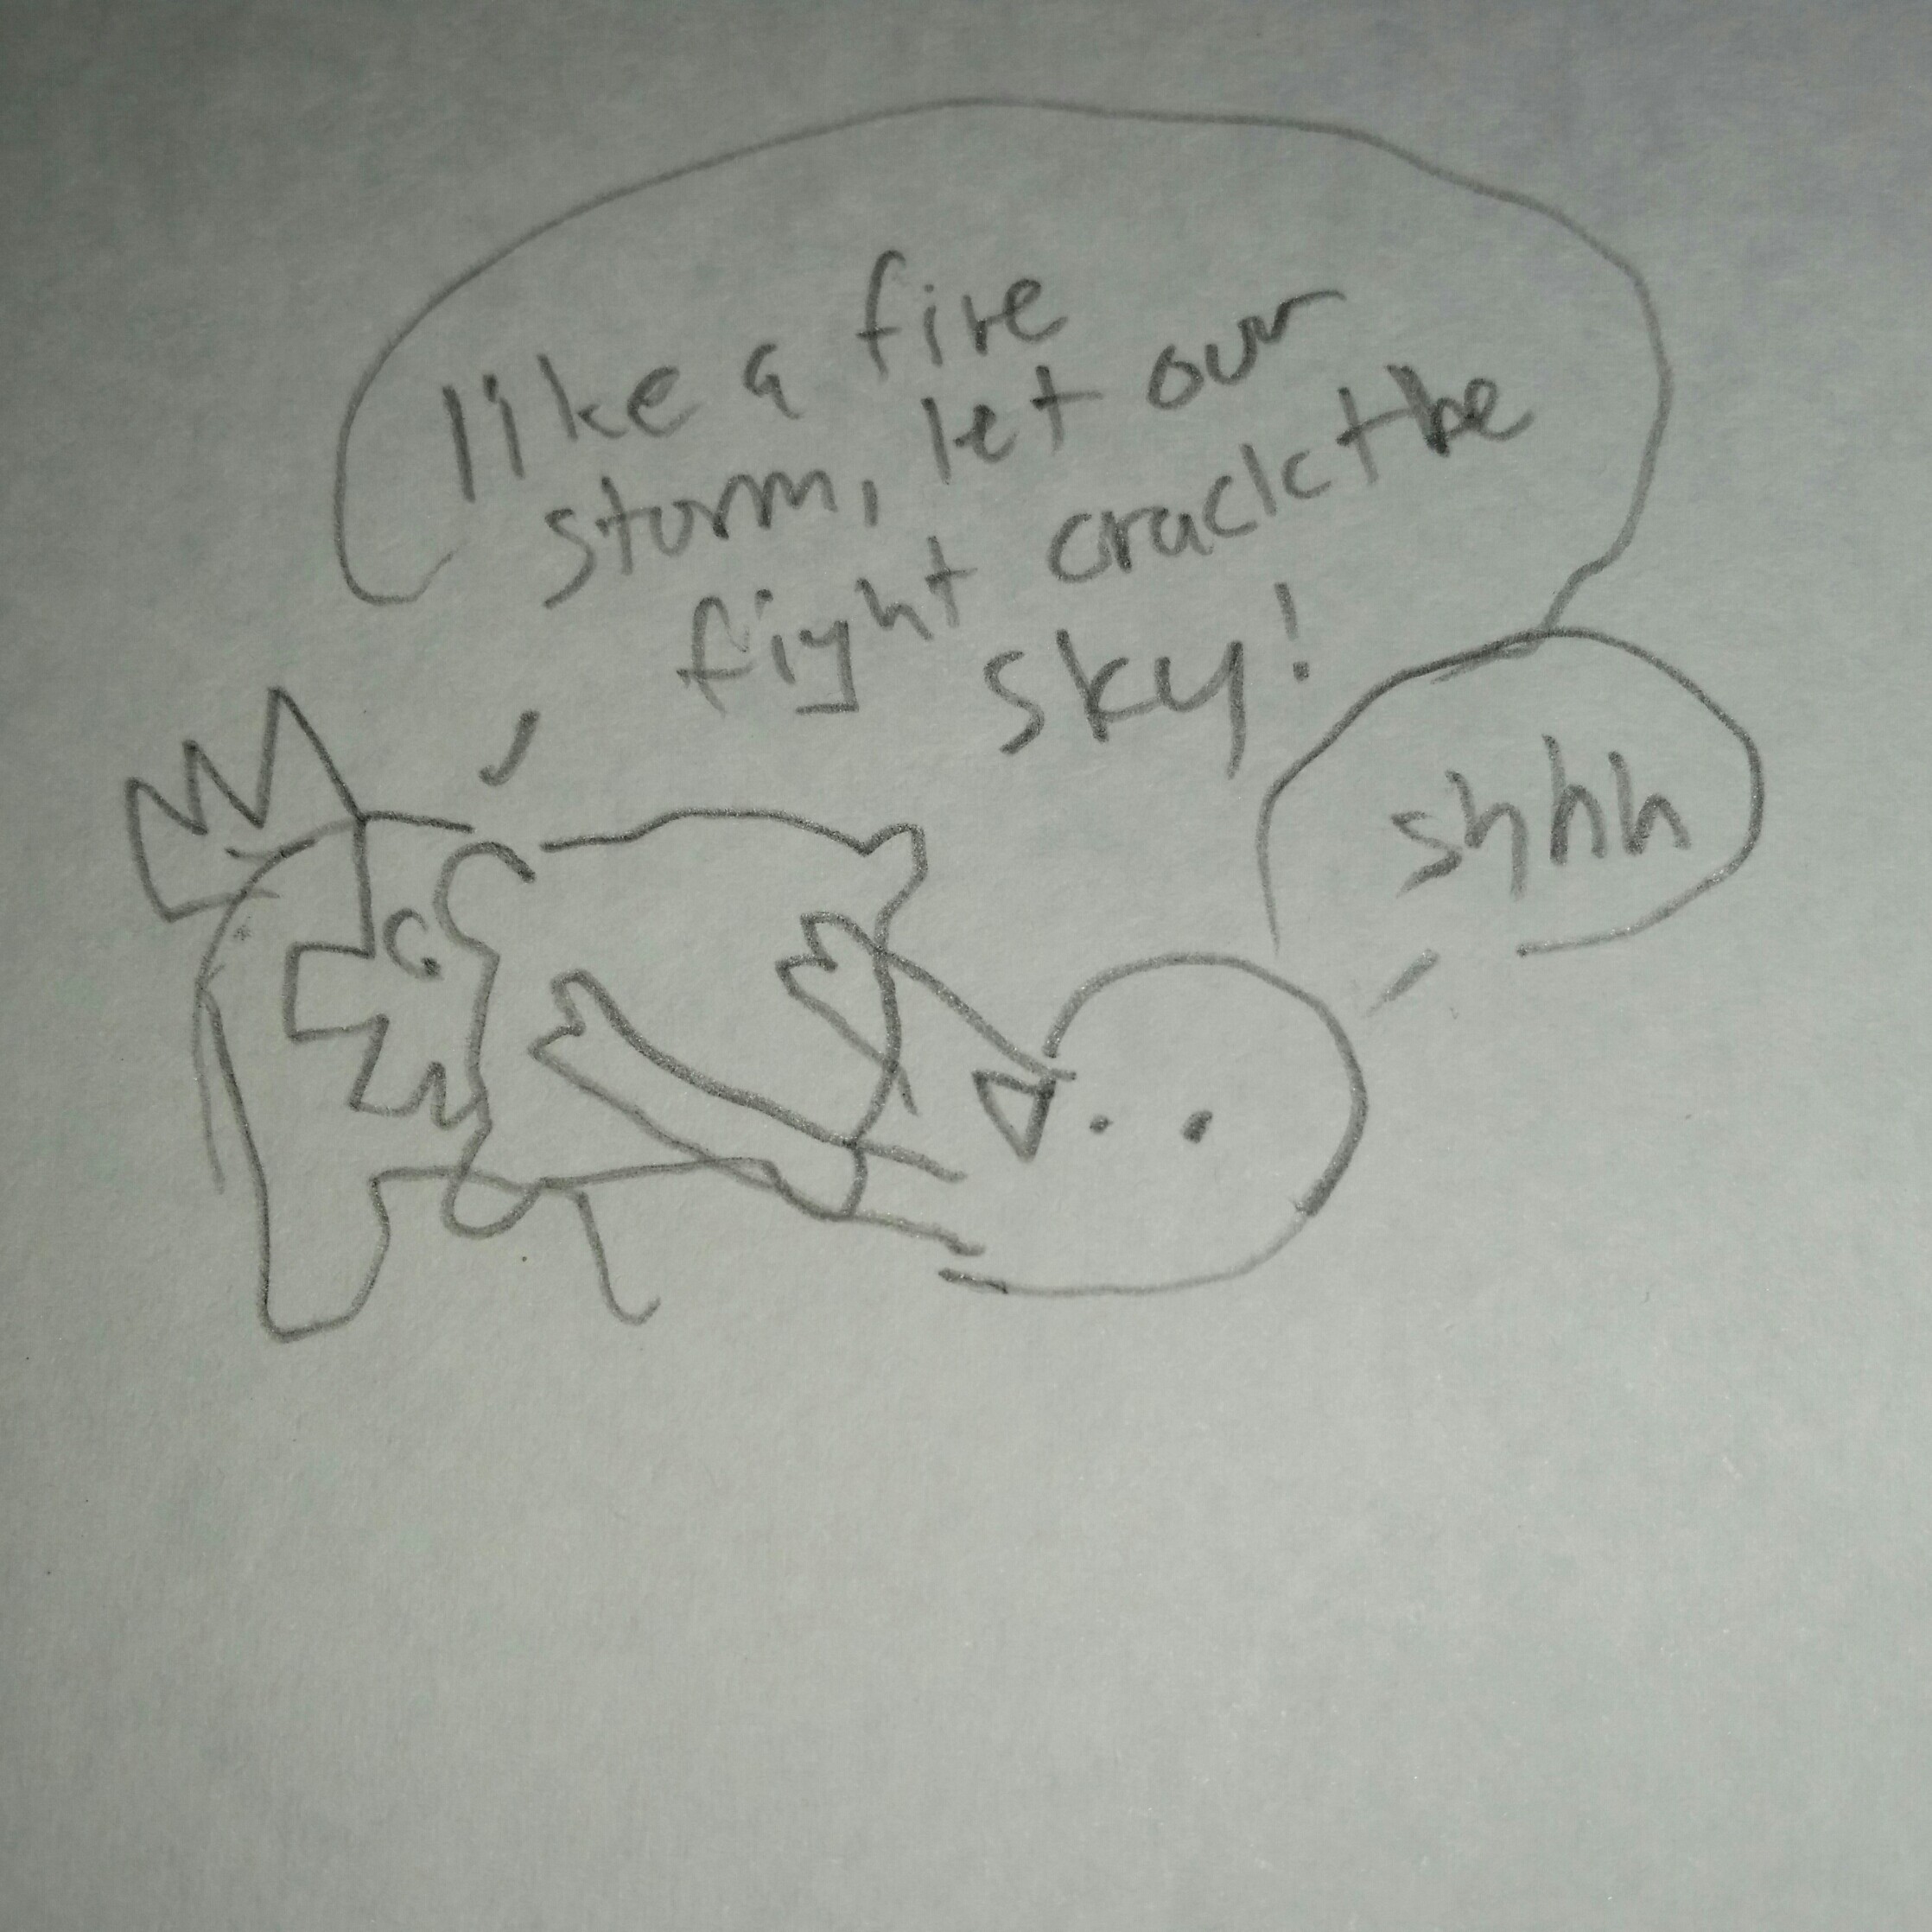 like a fire
storm, let our
fight crack the
sky!
shhh